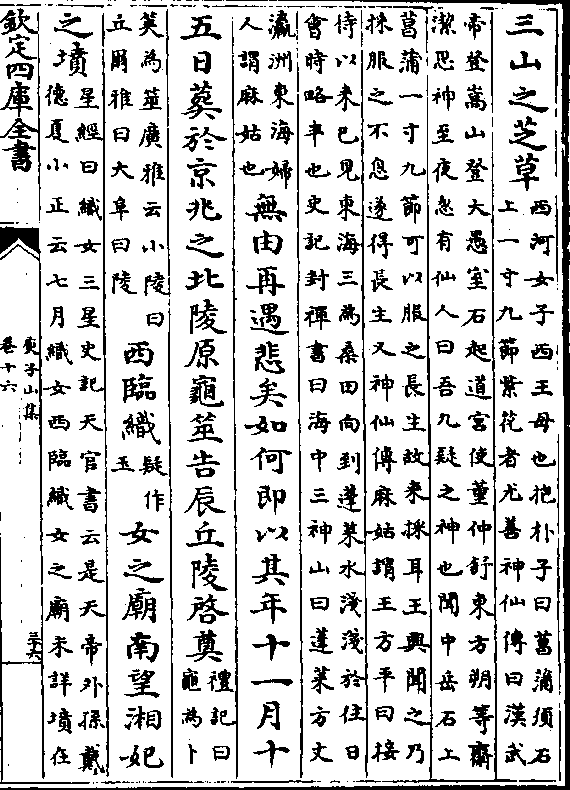 三山之芝草
西河女子西王母也抱朴子曰菖蒲須石
上一寸九節紫花者尤善神仙傳曰漢武
帝登嵩山登大愚室石起道宫使董仲舒東方朔等齋
潔思神至夜忽有仙人曰吾九疑之神也聞中岳石上
菖蒲一寸九節可以服之長生故來採耳王興聞之乃
採服之不息遂得長生又神仙傳麻姑謂王方平曰接
待以來已見東海三為桑田向到蓬萊水淺淺於往日
會時略半也史記封禪書曰海中三神山曰蓬萊方丈
瀛洲東海婦
人謂麻姑也
無由再遇悲矣如何即以其年十一月十
五日葬於京兆之北陵原龜筮告辰丘陵啓奠
禮記曰
龜為卜
筴為筮廣雅云小陵曰
丘爾雅曰大阜曰陵
西臨織
疑作
玉
女之廟南望湘妃
之墳
星經曰織女三星史記天官書云是天帝外孫戴
德夏小正云七月織女西臨織女之廟未詳墳在
欽定四庫全書
庾子山集
卷十六
三六